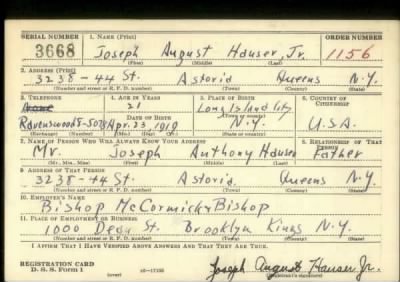 SERIAL NUMBER 1. NAME (Print) ORDER NUMBER
3668 Joseph August Hauser, Jr. 1156
(First) (Middle) (Last)
2. ADDRESS (Print)
3238-44 St. Astoria Queens N.Y.
(Number and street or R. F. D. number) (Town) (County) (State)
3. TELEPHONE 4. AGE IN YEARS 5. PLACE OF BIRTH 6. COUNTRY OF CITIZENSHIP
21 Long Island City
DATE OF BIRTH (Town or county)
Ravenswood 8- Apr. 23, 1919 N.Y. U.S.A.
(Exchange) (Number) (Mo.) (Day) (Yr.) (State or country)
7. NAME OF PERSON WHO WILL ALWAYS KNOW YOUR ADDRESS 8. RELATIONSHIP OF THAT PERSON
Mr. Joseph Anthony Hauser Father
(Mr., Mrs., Miss) (First) (Middle) (Last)
9. ADDRESS OF THAT PERSON
3238-44 St. Astoria, Queens N.Y.
(Number and street or R. F. D. number) (Town) (County) (State)
10. EMPLOYER'S NAME
Bishop McCormick & Bishop
11. PLACE OF EMPLOYMENT OR BUSINESS
1000 Dean St. Brooklyn Kings N.Y.
(Number and street or R. F. D. number) (Town) (County) (State)
I AFFIRM THAT I HAVE VERIFIED ABOVE ANSWERS AND THAT THEY ARE TRUE.
REGISTRATION CARD
D. S. S. Form 1 (over) Joseph August Hauser Jr.
(Registrant's signature)